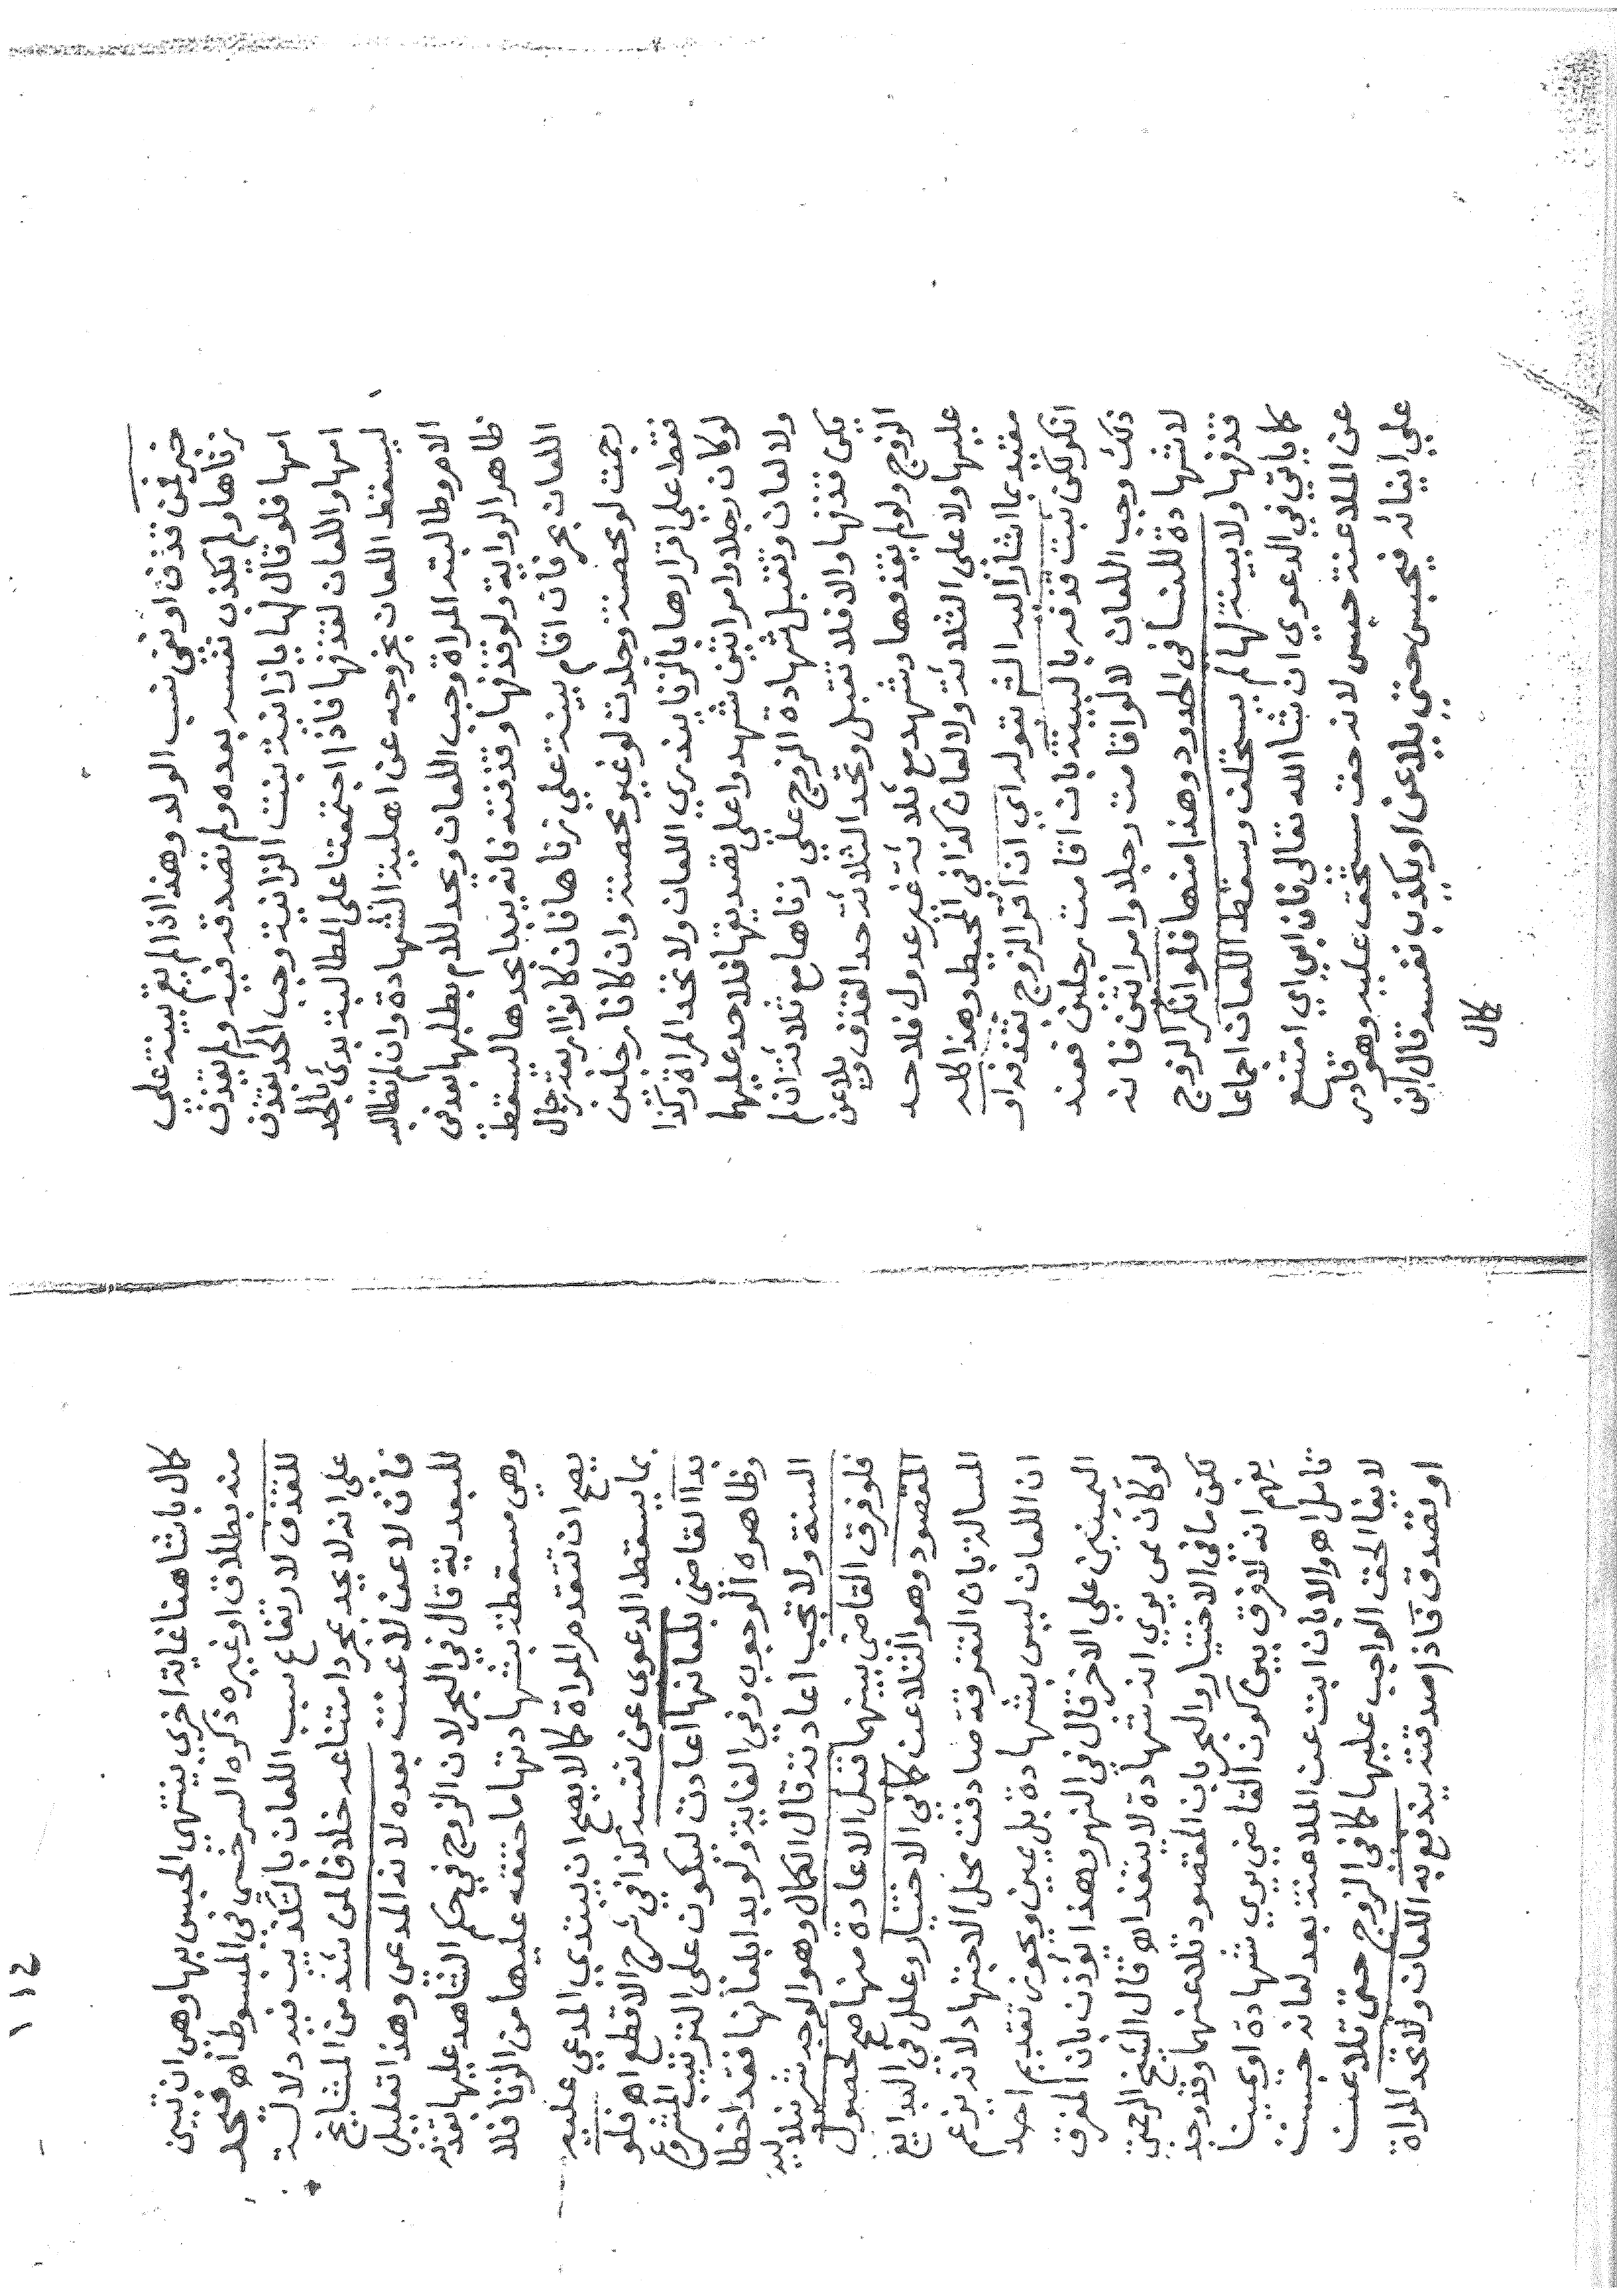 خبر لمن قذف او نفى نسب الولد وهذا اذا لم يقم بينة على
زناها ولم يكذب نفسه بعده ولم تصدقه فيه ولم يقذف
امها فلو قال لها يا زانية بنت الزانية وجب الحد بقذف
امها واللعان لقذفها فاذا اجتمعتا على المطالبة بدئ بالحد
ليسقط اللعان بخروجه عن اهلية الشهادة وان لم تطالب
الام وطالبت المراة وجب اللعان ويحد للام بطلبها بعد في
ظاهر الرواية ولو قذفها وقذفته فانه يبدا بحدها ليسقط
اللعان بحر فان اقام بينة على زناها فان كانوا اربعة رجال
رجمت لو محصنة وجلدت لو غير محصنة وان كانا رجلين
فقط على اقرارها بالزنا يندرئ اللعان ولا تحد المراة وكذا
لو كان رجلا وامراتين شهدوا على تصديقها فلا حد عليها
ولا لعان وتقبل شهادة الزوج على زناها مع ثلاثة ان لم
يكن قذفها والا فلا تقبل وتحد الثلاثة حد القذف ويلاعن
الزوج ولو لم يقذفها وشهد مع ثلاثة غير عدول فلا حد
عليها ولا على الثلاثة ولا لعان كذا في المحيط وهذا كله
مقيد بما اشار اليه الشم بقوله اي ان اقر الزوج بقذفه او
انكر لكن ثبت قذفه بالبينة بان اقامت رجلين فعند
ذلك وجب اللعان لا لو اقامت رجلا وامراتين فانه
لا شهادة للنسا في الحدود وهذا منها فلو انكر الزوج
قذفها ولا بينة لها لم يستحلف وسقط اللعان اجماعا
كما ياتي في الدعوى ان شا الله تعالى فان ابى اي امتنع
عن الملاعنة حبس لانه حق مستحق عليه وهو قادر
على ايفائه فيحبس حتى يلاعن او يكذب نفسه قال ابن
كمال
١١٤
كمال باشا هنا غاية اخرى ينتهى الحبس بها وهي ان تبين
منه بطلاق او غيره ذكره السرخسي في المبسوط اه فيحد
للقذف لارتفاع سبب اللعان بالتكذيب فيه دلالة
على انه لا يحد بمجرد امتناعه خلافا لمن شذ من المشايخ
فان لاعن لاعنت بعده لانه المدعى وهذا تعليل
للبعدية قال في البحر لان الزوج في حكم الشاهد عليها بقذفه
وهي مسقطة بشهادتها ما حققه عليها من الزنا فلا
يصح ان تتقدم المراة كما لا يصح ان يبتدي المدعي عليه
بما يسقط الدعوى عن نفسه كذا في شرح الاقطع اه فلو
بدا القاضي بلعانها اعادت ليكون على الترتيب المشروع
وظاهره الوجوب وفي الغاية ولو بدا بلعانها فقد اخطا
السنة ولا تجب اعادته قال الكمال وهو الوجه شرنبلاليه
فلو فرق القاضي بينهما قبل الاعادة منها صح لحصول
المقصود وهو التلاعن كما في الاختيار وعلل في البدايع
المسالة بان التفرقة صادفت محل الاجتهاد لانه يزعم
ان اللعان ليس بشهادة بل يمين ويجوز تقديم احد
اليمينين على الاخر قال في النهر وهذا يؤذن بان المفرق
لو كان ممن يرى انه شهادة لا ينفذ اه قال الشيخ الرحمتي
لكن ما في الاختيار والبحر بان المقصود تلاعنهما وقد وجد
يفهم انه لا فرق بين كون القاضي يرى شهادة او يمينا
تامل اه والا بان ابت عن الملاعنة بعد لعانه حبست
لايفا الحق الواجب عليها كما في الزوج حتى تلاعن
او تصدقه فاذا صدقته يندفع به اللعان ولا تحد المراة